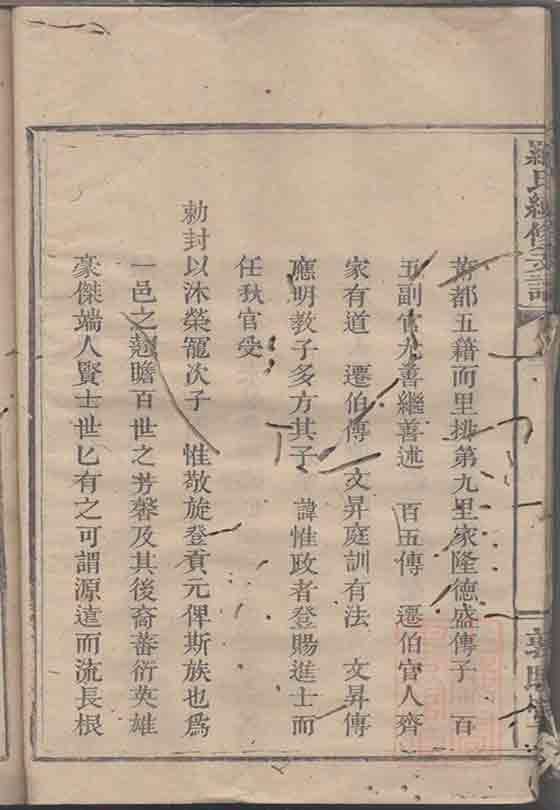 羅氏續修支譜
都五籍而里排第九里家隆德盛傳子 百
五副官尤善繼善述 百五傳 遷伯官人齊
家有道 遷伯傳 文昇庭訓有法 文昇傳
應明教子多方其子 諱惟政者登賜進士而
任秋官受
勅封以沐榮寵次子 惟敬旋登貢元俾斯族也為
一邑之瞻百世之芳馨及其後裔蕃衍英雄
豪傑端人賢士世匕有之可謂源遠而流長根